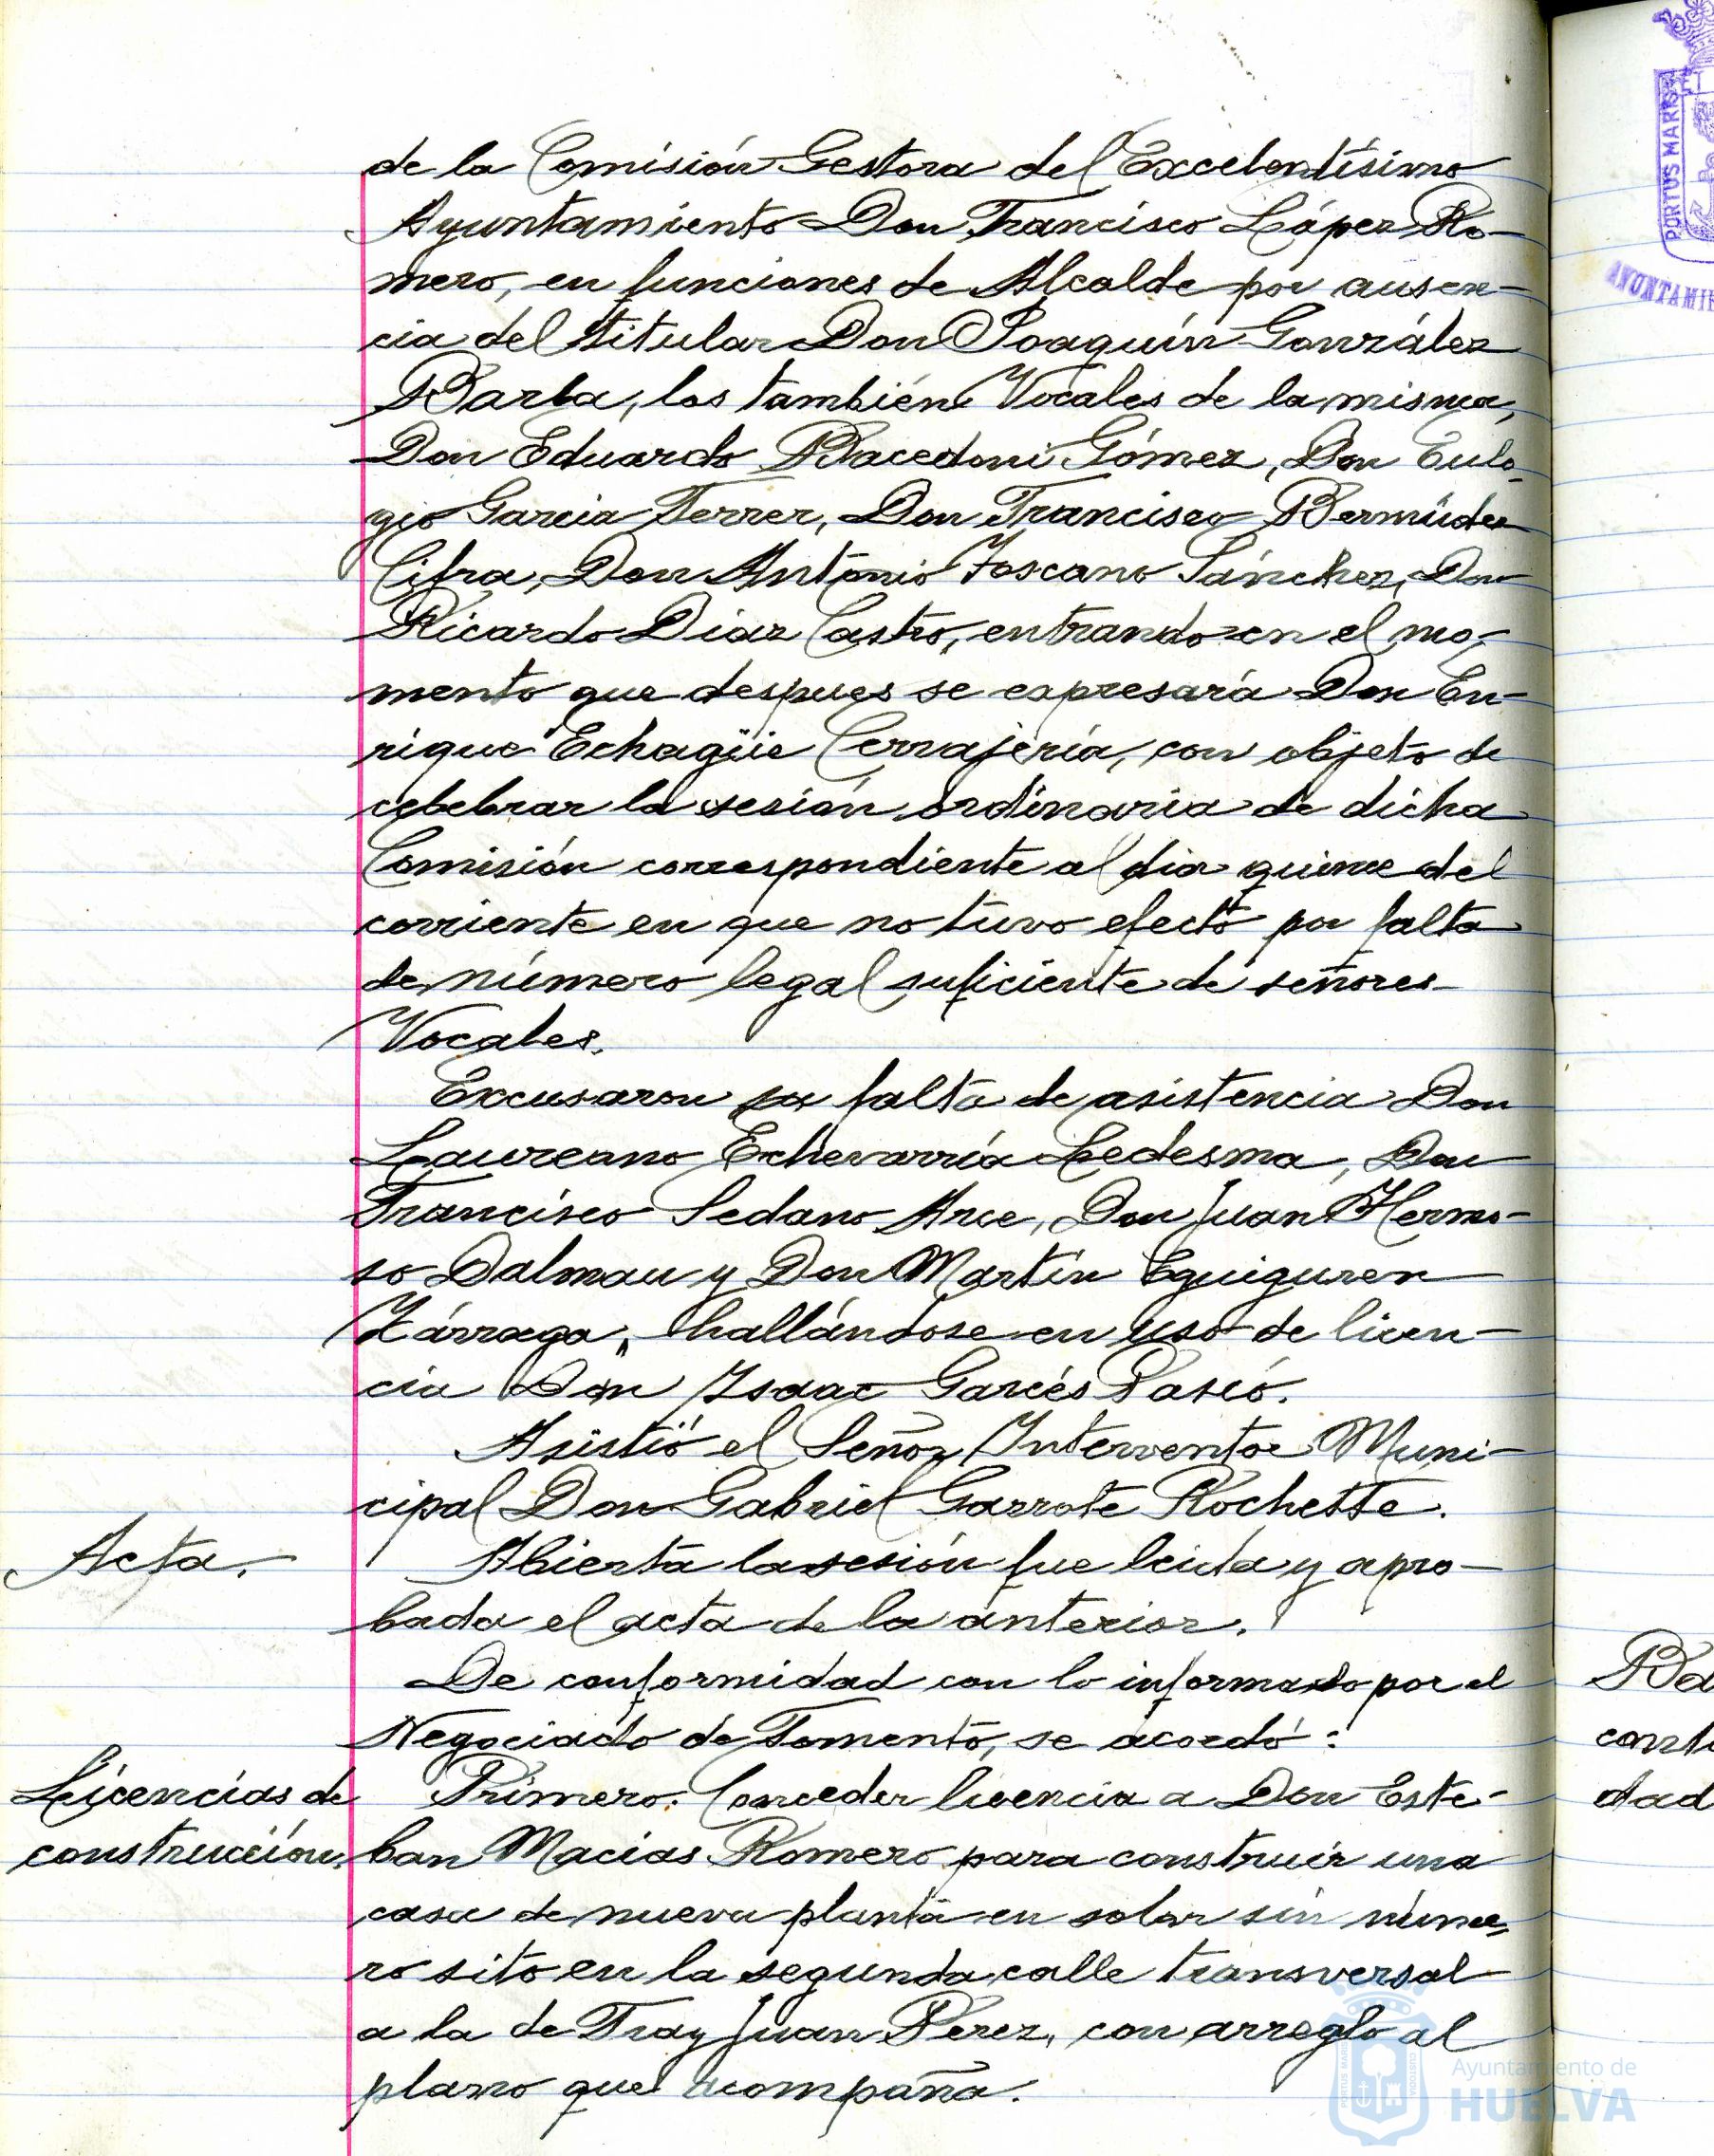 de la Comisión Gestora del Excelentísimo
Ayuntamiento Don Francisco López Ro-
mero, en funciones de Alcalde por ausen-
cia del titular Don Joaquín González
Barba, los también Vocales de la misma,
Don Eduardo Bacedoni Gómez, Don Eulo-
gio Garcia Ferrer, Don Francisco Bermúdez
Cifra, Don Antonio Toscano Sánchez, Don
Ricardo Diaz Castro, entrando en el mo-
mento que despues se expresará Don En-
rique Echagüe Cerrajería, con objeto de
celebrar la sesión ordinaria de dicha
Comisión correspondiente al dia quince del
corriente en que no tuvo efecto por falta
de número legal suficiente de señores
Vocales.
Excusaron su falta de asistencia Don
Laureano Echevarría Ledesma, Don
Francisco Sedano Arce, Don Juan Hermo-
so Dalmau y Don Martín Eguiguren
Zárraga, hallándose en uso de licen-
cia Don Isaac Garcés Paseó.
Asistió el Señor Interventor Muni-
cipal Don Gabriel Garrote Rochette.
Acta.
Abierta la sesión fue leida y apro-
bada el acta de la anterior.
De conformidad con lo informado por el
Negociado de Fomento, se acordó:
Licencias de
construcción.
Primero. Conceder licencia a Don Este-
ban Macias Romero para construir una
casa de nueva planta en solar sin núme-
ro sito en la segunda calle transversal
a la de Fray Juan Pérez, con arreglo al
plano que acompaña.
PORTUS MARIS
Ayuntamiento de
HUELVA